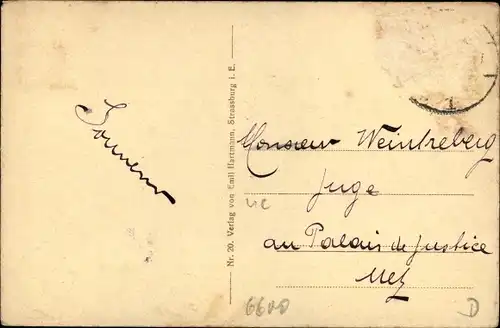 Souvenir
Nr. 20. Verlag von Emil Hartmann, Strassburg i. E.
Monsieur Weintreberg
Juge
au Palais de Justice
Metz
6600
D